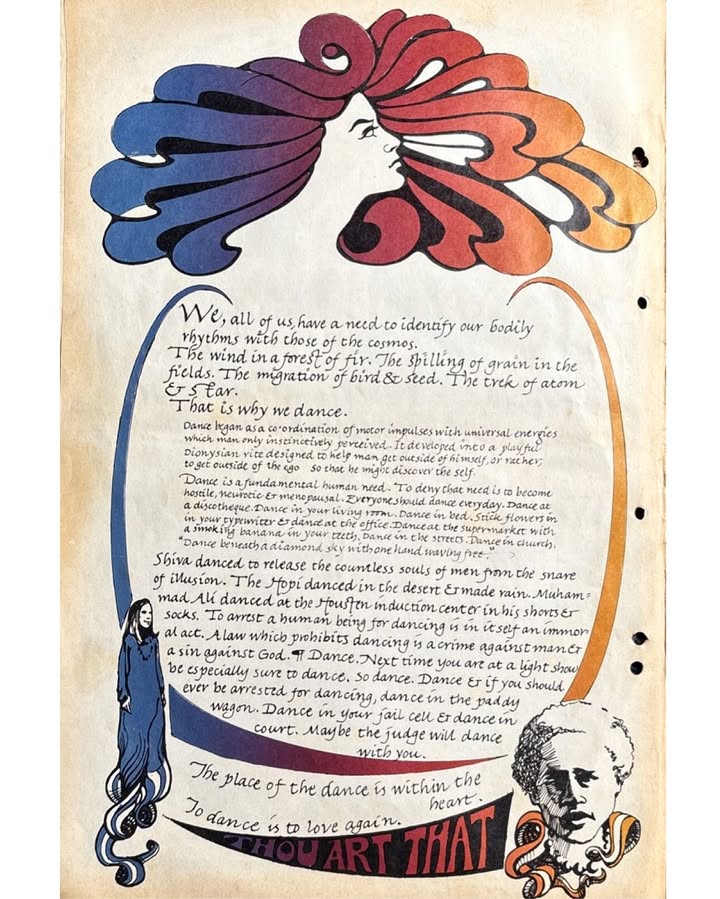 We, all of us, have a need to identify our bodily
rhythms with those of the cosmos.
The wind in a forest of fir. The spilling of grain in the
fields. The migration of bird & seed. The trek of atom
& star.
That is why we dance.
Dance began as a co-ordination of motor impulses with universal energies
which man only instinctively perceived. It developed into a playful
Dionysian rite designed to help man get outside of himself, or rather,
to get outside of the ego so that he might discover the self.
Dance is a fundamental human need. To deny that need is to become
hostile, neurotic & menopausal. Everyone should dance everyday. Dance at
a discotheque. Dance in your living room. Dance in bed. Stick flowers in
in your typewriter & dance at the office. Dance at the supermarket with
a smoking banana in your teeth. Dance in the streets. Dance in church.
"Dance beneath a diamond sky with one hand waving free."
Shiva danced to release the countless souls of men from the snare
of illusion. The Hopi danced in the desert & made rain. Muham=
mad Ali danced at the Housten induction center in his shorts &
socks. To arrest a human being for dancing is in itself an immor
al act. A law which prohibits dancing is a crime against man &
a sin against God. ¶ Dance. Next time you are at a light show
be especially sure to dance. So dance. Dance & if you should
ever be arrested for dancing, dance in the paddy
wagon. Dance in your jail cell & dance in
court. Maybe the judge will dance
with you.
The place of the dance is within the
heart.
To dance is to love again.
THOU ART THAT